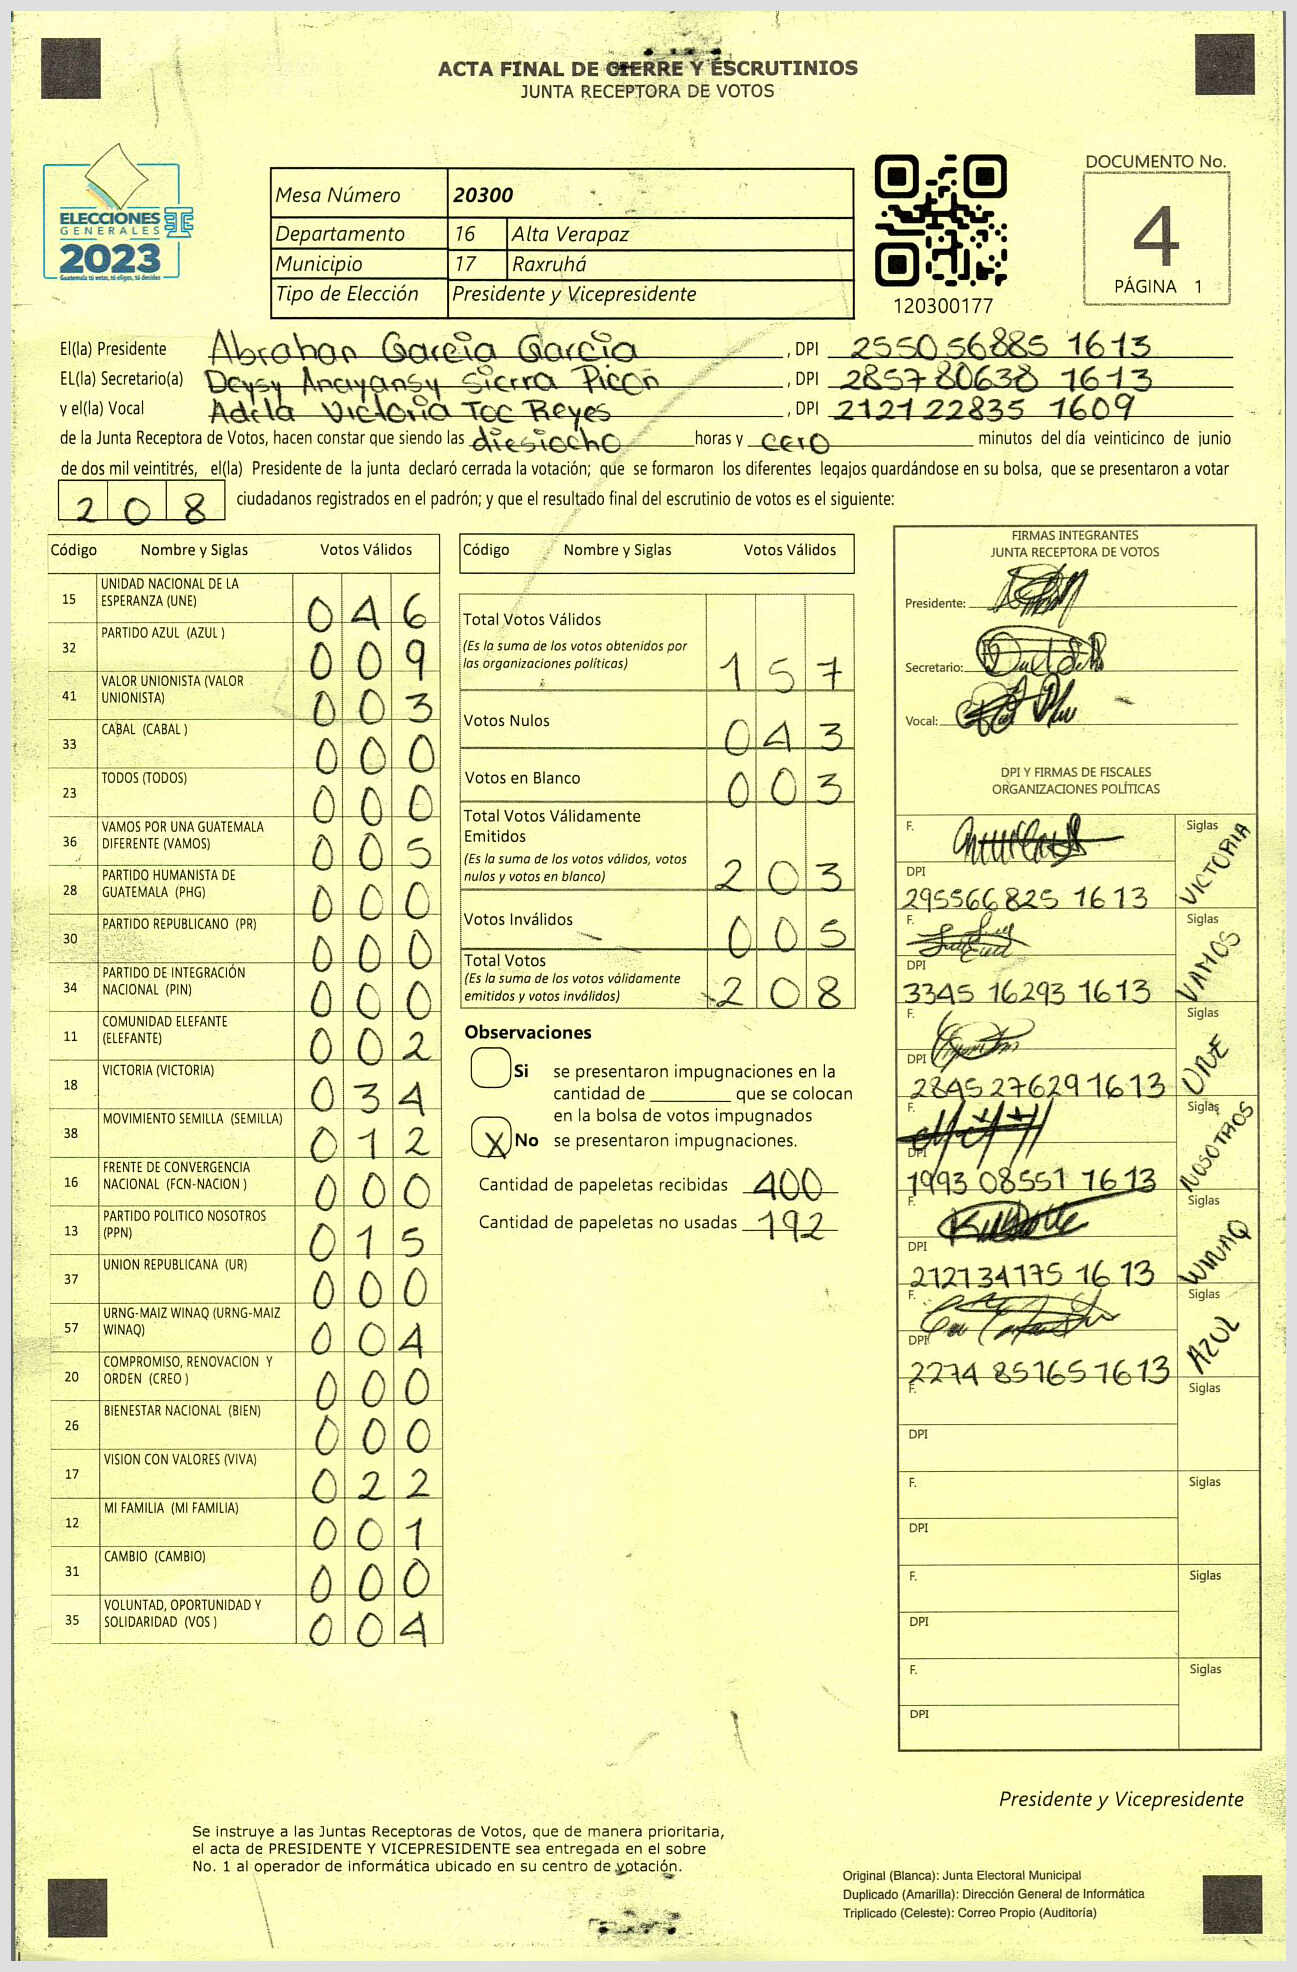 ACTA FINAL DE CIERRE Y ESCRUTINIOS
JUNTA RECEPTORA DE VOTOS
ELECCIONES
GENERALES
2023
Guatemala tú votas, tú eliges, tú decides
Mesa Número 20300
Departamento 16 Alta Verapaz
Municipio 17 Raxruhá
Tipo de Elección Presidente y Vicepresidente
120300177
DOCUMENTO No.
4
PÁGINA 1
El(la) Presidente Abrahan Garcia Garcia, DPI 2550 56885 1613
EL(la) Secretario(a) Deysy Anayansy Sierra Picon, DPI 2857 80638 1613
y el(la) Vocal Adela Victoria Toc Reyes, DPI 2121 22835 1609
de la Junta Receptora de Votos, hacen constar que siendo las diesiocho horas y cero minutos del día veinticinco de junio
de dos mil veintitrés, el(la) Presidente de la junta declaró cerrada la votación; que se formaron los diferentes legajos guardándose en su bolsa, que se presentaron a votar
208 ciudadanos registrados en el padrón; y que el resultado final del escrutinio de votos es el siguiente:
Código Nombre y Siglas Votos Válidos
15 UNIDAD NACIONAL DE LA ESPERANZA (UNE) 046
32 PARTIDO AZUL (AZUL ) 009
41 VALOR UNIONISTA (VALOR UNIONISTA) 003
33 CABAL (CABAL ) 000
23 TODOS (TODOS) 000
36 VAMOS POR UNA GUATEMALA DIFERENTE (VAMOS) 005
28 PARTIDO HUMANISTA DE GUATEMALA (PHG) 000
30 PARTIDO REPUBLICANO (PR) 000
34 PARTIDO DE INTEGRACIÓN NACIONAL (PIN) 000
11 COMUNIDAD ELEFANTE (ELEFANTE) 002
18 VICTORIA (VICTORIA) 034
38 MOVIMIENTO SEMILLA (SEMILLA) 012
16 FRENTE DE CONVERGENCIA NACIONAL (FCN-NACION ) 000
13 PARTIDO POLITICO NOSOTROS (PPN) 015
37 UNION REPUBLICANA (UR) 000
57 URNG-MAIZ WINAQ (URNG-MAIZ WINAQ) 004
20 COMPROMISO, RENOVACION Y ORDEN (CREO ) 000
26 BIENESTAR NACIONAL (BIEN) 000
17 VISION CON VALORES (VIVA) 022
12 MI FAMILIA (MI FAMILIA) 001
31 CAMBIO (CAMBIO) 000
35 VOLUNTAD, OPORTUNIDAD Y SOLIDARIDAD (VOS ) 004
Código Nombre y Siglas Votos Válidos
Total Votos Válidos 157
(Es la suma de los votos obtenidos por
las organizaciones políticas)
Votos Nulos 043
Votos en Blanco 003
Total Votos Válidamente
Emitidos 203
(Es la suma de los votos válidos, votos
nulos y votos en blanco)
Votos Inválidos 005
Total Votos 208
(Es la suma de los votos válidamente
emitidos y votos inválidos)
Observaciones
Si se presentaron impugnaciones en la
cantidad de ________ que se colocan
en la bolsa de votos impugnados
X No se presentaron impugnaciones.
Cantidad de papeletas recibidas 400
Cantidad de papeletas no usadas 192
FIRMAS INTEGRANTES
JUNTA RECEPTORA DE VOTOS
Presidente:
Secretario:
Vocal:
DPI Y FIRMAS DE FISCALES
ORGANIZACIONES POLÍTICAS
F. Siglas VICTORIA
DPI 295566825 1613
F. Siglas VAMOS
DPI 3345 16293 1613
F. Siglas UNE
DPI 2845 27629 1613
F. Siglas NOSOTROS
DPI 1993 08551 1613
F. Siglas WINAQ
DPI 2121 34175 1613
F. Siglas AZUL
DPI 2274 85165 1613
F. Siglas
DPI
F. Siglas
DPI
F. Siglas
DPI
F. Siglas
DPI
Presidente y Vicepresidente
Se instruye a las Juntas Receptoras de Votos, que de manera prioritaria,
el acta de PRESIDENTE Y VICEPRESIDENTE sea entregada en el sobre
No. 1 al operador de informática ubicado en su centro de votación.
Original (Blanca): Junta Electoral Municipal
Duplicado (Amarilla): Dirección General de Informática
Triplicado (Celeste): Correo Propio (Auditoría)